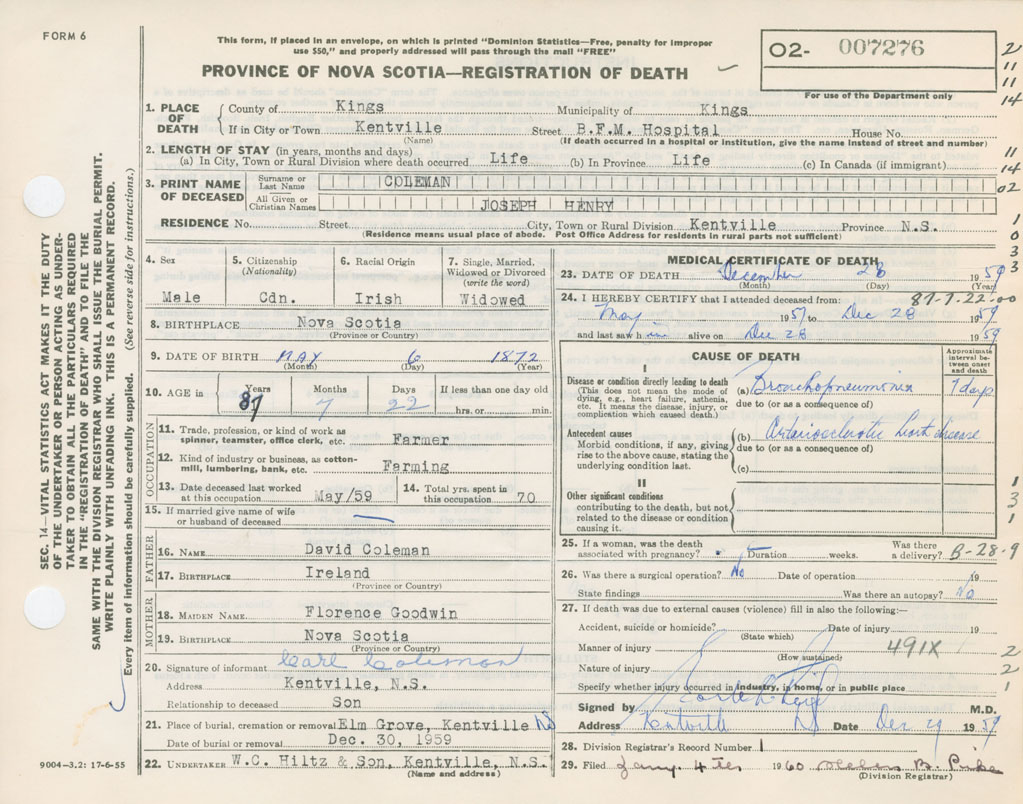 FORM 6
This form, if placed in an envelope, on which is printed "Dominion Statistics—Free, penalty for improper
use $50," and properly addressed will pass through the mail "FREE"
PROVINCE OF NOVA SCOTIA—REGISTRATION OF DEATH
02- 007276
For use of the Department only
2
11
11
14
1. PLACE OF DEATH { County of Kings Municipality of Kings
If in City or Town Kentville Street B.F.M. Hospital House No.
(Name) (If death occurred in a hospital or institution, give the name instead of street and number)
2. LENGTH OF STAY (in years, months and days)
(a) In City, Town or Rural Division where death occurred Life (b) In Province Life (c) In Canada (if immigrant)
11
14
3. PRINT NAME OF DECEASED
Surname or Last Name COLEMAN
02
All Given or Christian Names JOSEPH HENRY
RESIDENCE No. Street City, Town or Rural Division Kentville Province N.S.
(Residence means usual place of abode. Post Office Address for residents in rural parts not sufficient)
1
0
3
3
4. Sex
Male
5. Citizenship
(Nationality)
Cdn.
6. Racial Origin
Irish
7. Single, Married,
Widowed or Divorced
(write the word)
Widowed
8. BIRTHPLACE Nova Scotia
(Province or Country)
9. DATE OF BIRTH MAY 6 1872
(Month) (Day) (Year)
10. AGE in
Years Months Days If less than one day old
87 7 22 hrs. or min.
OCCUPATION
11. Trade, profession, or kind of work as
spinner, teamster, office clerk, etc. Farmer
12. Kind of industry or business, as cotton-
mill, lumbering, bank, etc. Farming
13. Date deceased last worked
at this occupation May/59
14. Total yrs. spent in
this occupation 70
15. If married give name of wife
or husband of deceased —
FATHER
16. NAME David Coleman
17. BIRTHPLACE Ireland
(Province or Country)
MOTHER
18. MAIDEN NAME Florence Goodwin
19. BIRTHPLACE Nova Scotia
(Province or Country)
20. Signature of informant Carl Coleman
Address Kentville, N.S.
Relationship to deceased Son
21. Place of burial, cremation or removal Elm Grove, Kentville NS
Date of burial or removal Dec. 30, 1959
22. UNDERTAKER W.C. Hiltz & Son, Kentville, N.S.
(Name and address)
MEDICAL CERTIFICATE OF DEATH
23. DATE OF DEATH December 28 1959
(Month) (Day) (Year)
24. I HEREBY CERTIFY that I attended deceased from: 87-7-22-00
May 1957 to Dec 28 1959
and last saw h im alive on Dec 28 1959
CAUSE OF DEATH
Approximate
interval be-
tween onset
and death
I
Disease or condition directly leading to death
(This does not mean the mode of
dying, e.g., heart failure, asthenia,
etc. It means the disease, injury, or
complication which caused death.)
(a) Bronchopneumonia 7 days
due to (or as a consequence of)
Antecedent causes
Morbid conditions, if any, giving
rise to the above cause, stating the
underlying condition last.
(b) Arteriosclerotic heart disease
due to (or as a consequence of)
(c)
II
Other significant conditions
contributing to the death, but not
related to the disease or condition
causing it.
1
3
1
25. If a woman, was the death
associated with pregnancy? Duration weeks. Was there
a delivery? B-28-9
26. Was there a surgical operation? No Date of operation 19
State findings Was there an autopsy? No
27. If death was due to external causes (violence) fill in also the following:—
Accident, suicide or homicide? Date of injury 19
(State which)
Manner of injury 491X 2
(How sustained)
Nature of injury 2
Specify whether injury occurred in industry, in home, or in public place 1
Signed by M.D.
Address Kentville NS Date Dec 29 1959
28. Division Registrar's Record Number 1
29. Filed Jany. 4th 1960
(Division Registrar)
SEC. 14—VITAL STATISTICS ACT MAKES IT THE DUTY
OF THE UNDERTAKER OR PERSON ACTING AS UNDER-
TAKER TO OBTAIN ALL THE PARTICULARS REQUIRED
IN THE "REGISTRATION OF DEATH" AND TO FILE THE
SAME WITH THE DIVISION REGISTRAR WHO SHALL ISSUE THE BURIAL PERMIT.
WRITE PLAINLY WITH UNFADING INK. THIS IS A PERMANENT RECORD.
Every item of information should be carefully supplied. (See reverse side for instructions.)
9004—3.2: 17-6-55